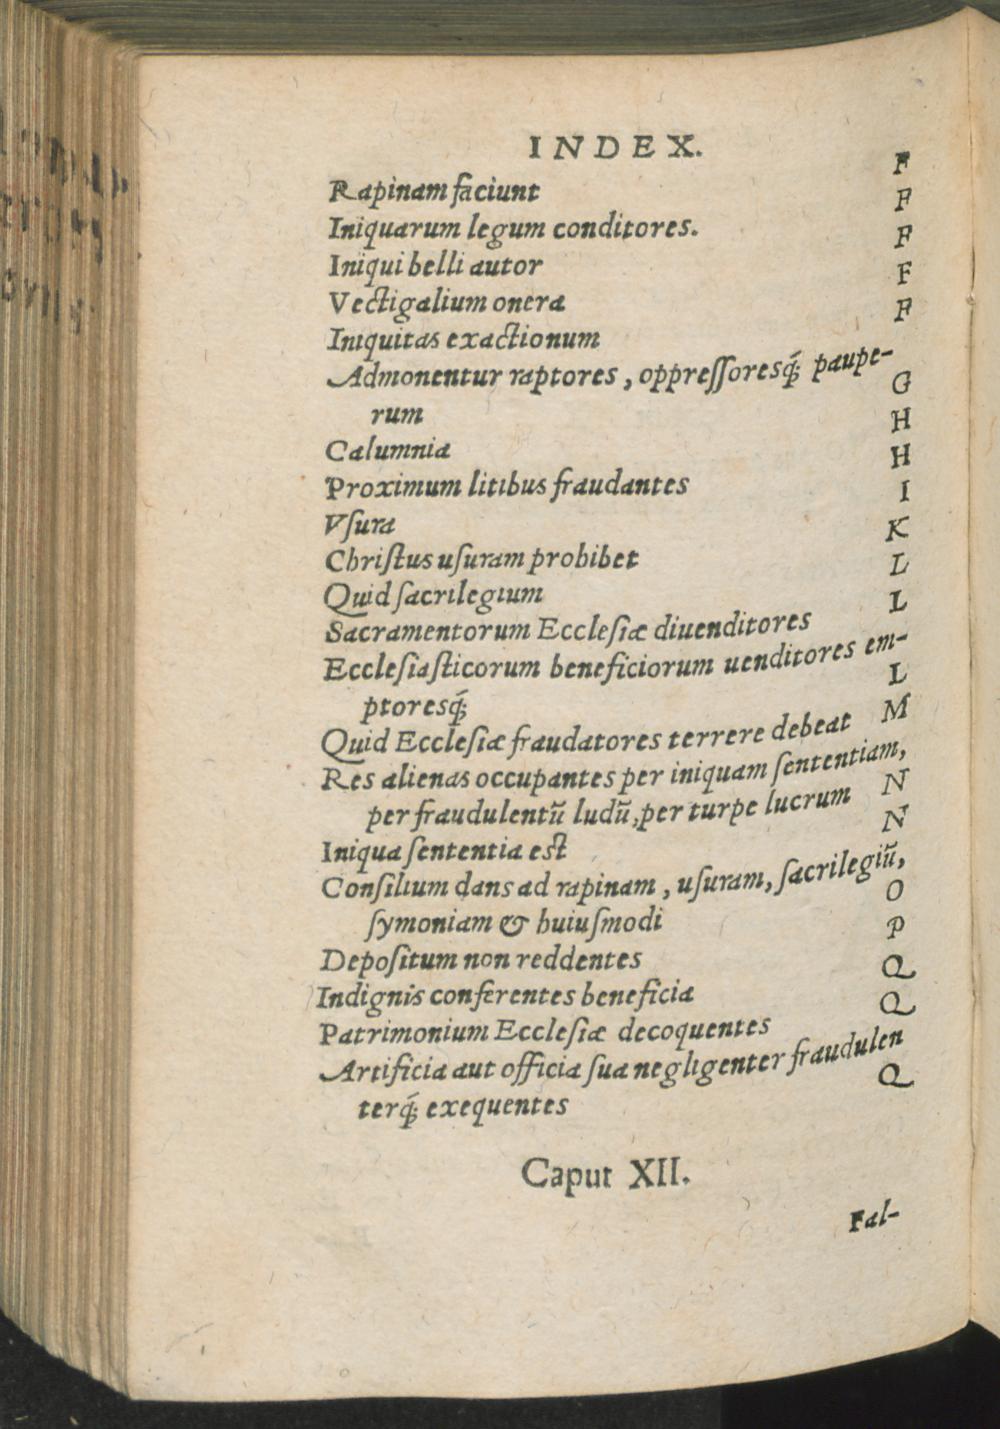 INDEX.
Rapinam faciunt F
Iniquarum legum conditores. F
Iniqui belli autor F
Vectigalium onera F
Iniquitas exactionum F
Admonentur raptores, oppreſſoresq́; paupe-
rum G
Calumnia H
Proximum litibus fraudantes H
Vſura I
Chriſtus uſuram prohibet K
Quid ſacrilegium L
Sacramentorum Eccleſiæ diuenditores L
Eccleſiaſticorum beneficiorum uenditores em-
ptoresq́; L
Quid Eccleſiæ fraudatores terrere debeat M
Res alienas occupantes per iniquam ſententiam,
per fraudulentũ ludũ, per turpe lucrum N
Iniqua ſententia est N
Conſilium dans ad rapinam, uſuram, ſacrilegiũ,
ſymoniam & huiuſmodi O
Depoſitum non reddentes P
Indignis conferentes beneficia Q
Patrimonium Eccleſiæ decoquentes Q
Artificia aut officia ſua negligenter fraudulen
terq́; exequentes Q
Caput XII.
Fal-